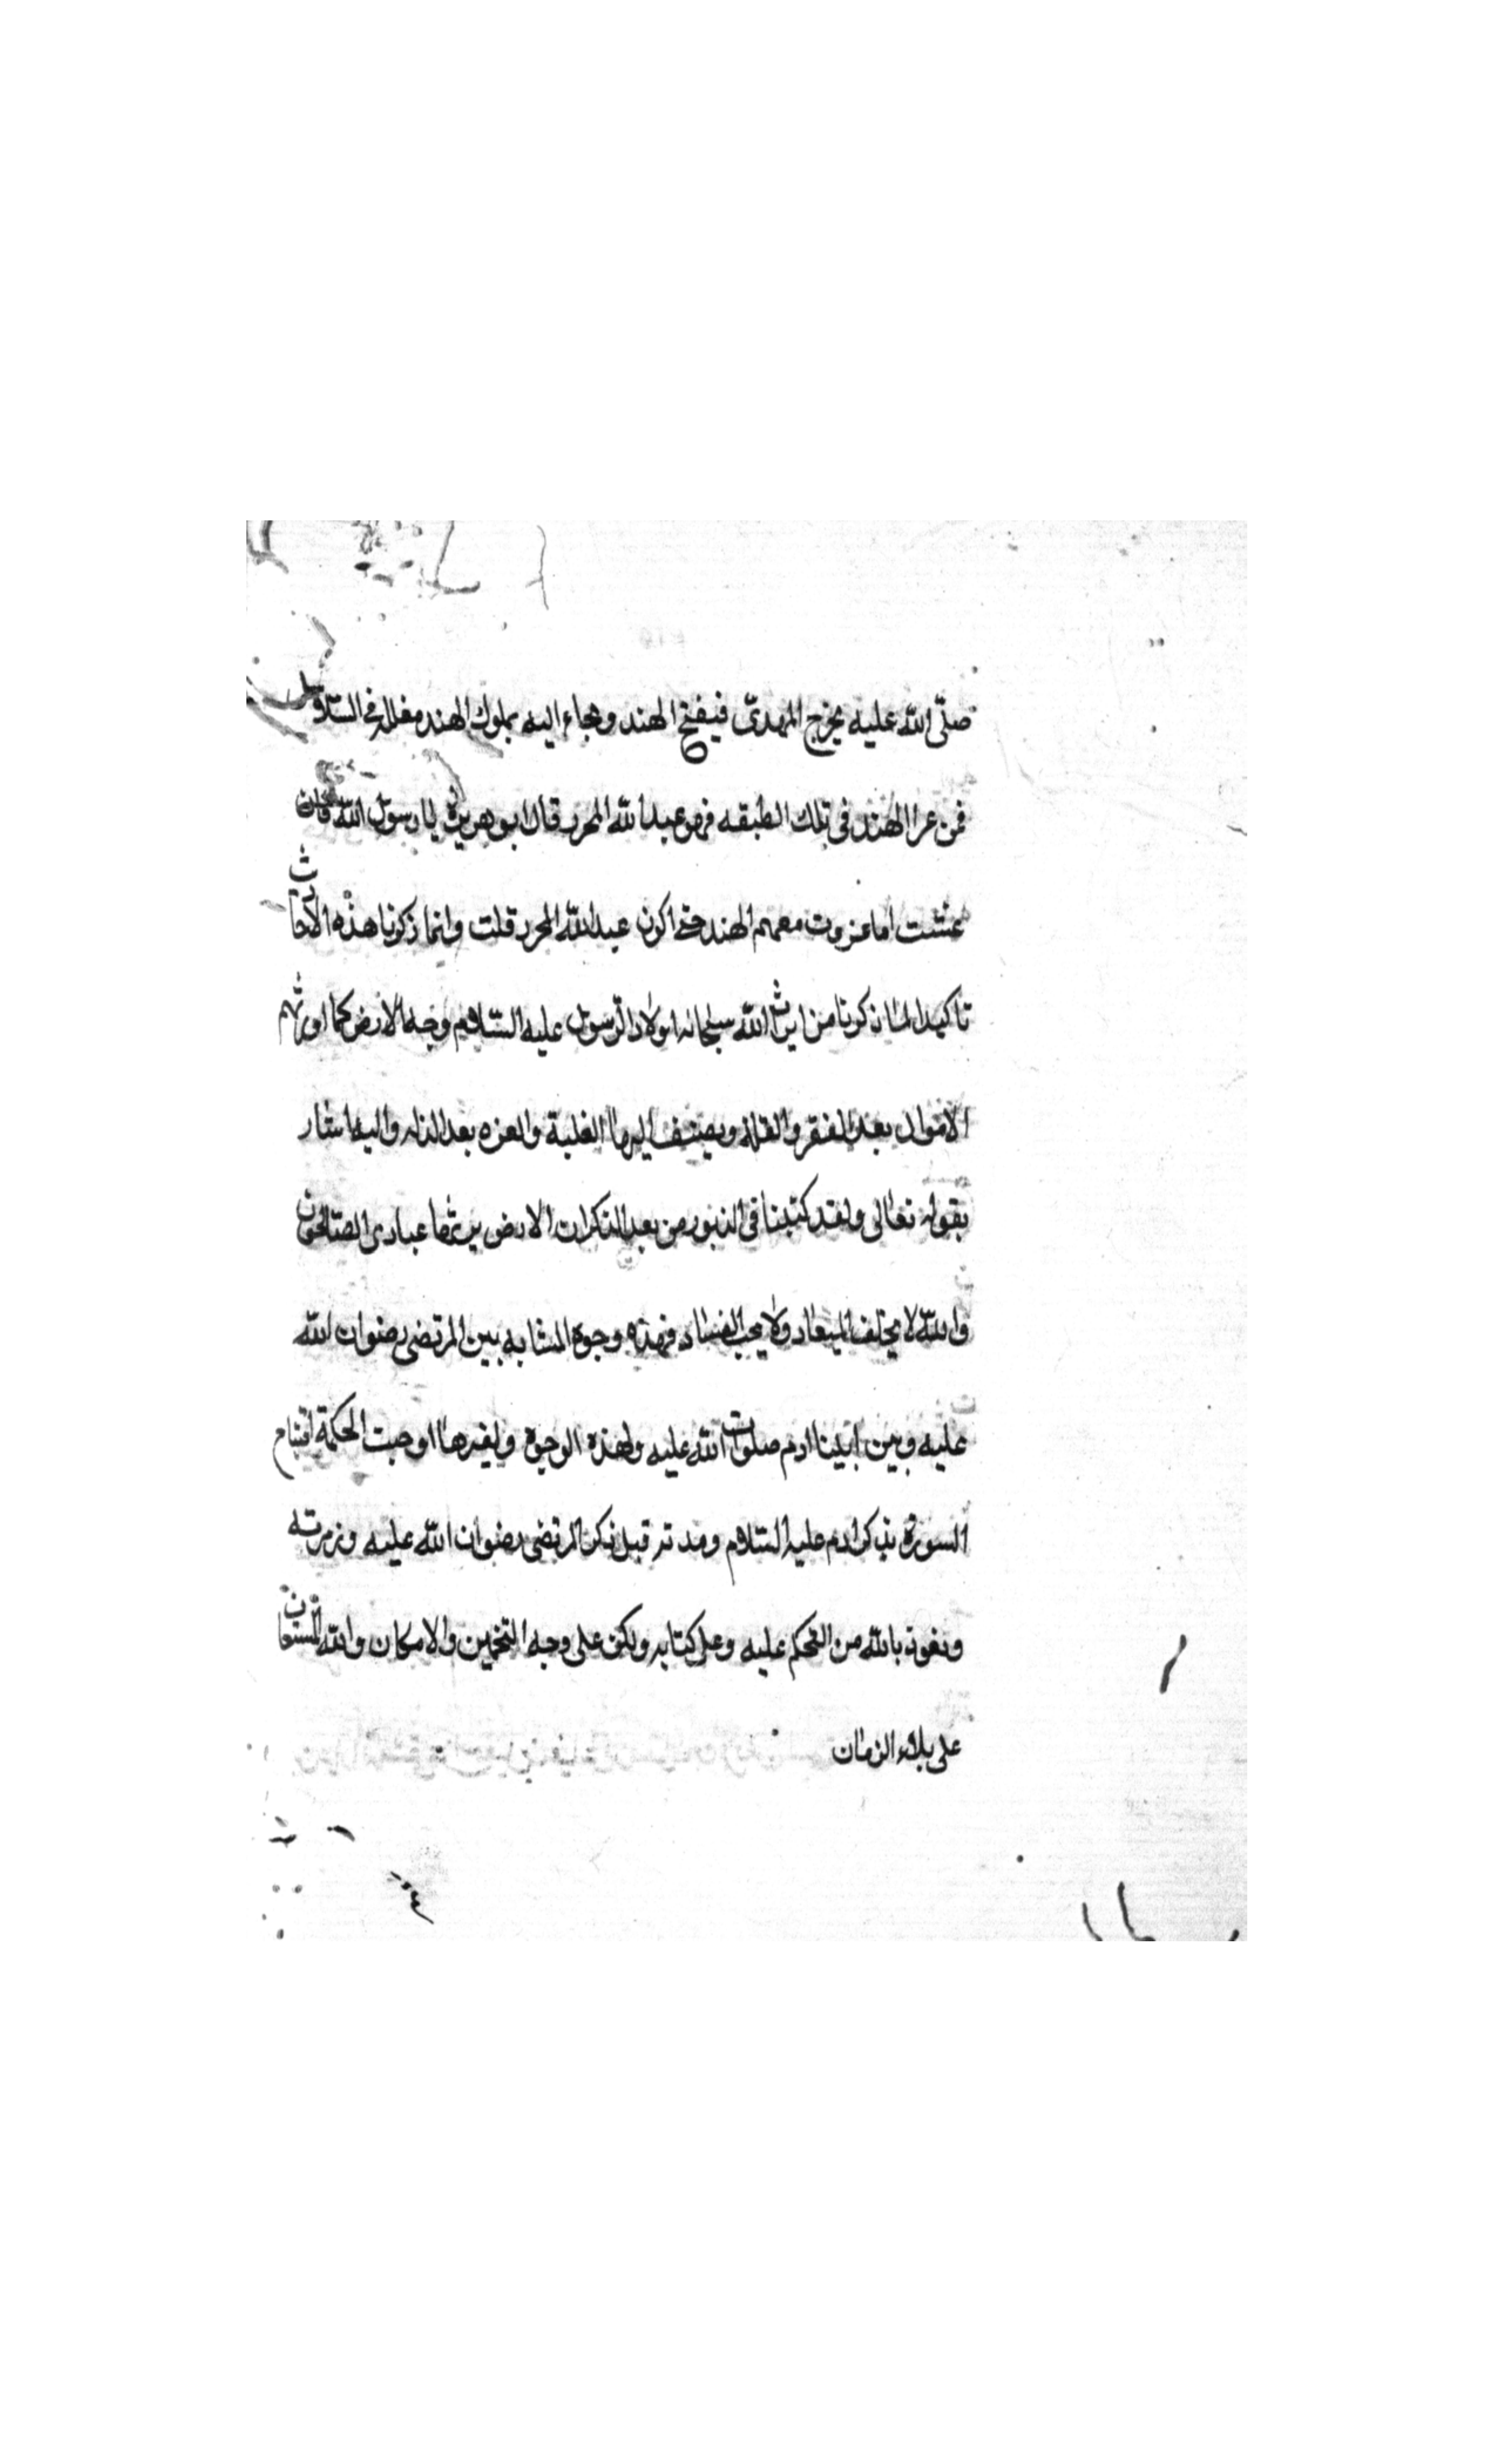 صلّى الله عليه يخرج المهدىّ فيفتح الهند ويجاء اليه بملوك الهند مغلله فى السلاسل
فمن غزا الهند فى تلك الطبقه فهو عبد الله المحرر قال ابو هريرة يا رسول الله فان
عشت اما غزوت معهم الهند حتى اكون عبد الله المحرر قلت وانما ذكرنا هذه الاحاديث
تاكيدا لما ذكرنا من ايراث الله سبحانه اولاد الرسول عليه السلام وجه الارض كما اورثهم
الاموال بعد الفقر والقلة ويضيف اليها الغلبة والعزه بعد الذله واليه اشار
بقوله تعالى ولقد كتبنا فى الزبور من بعد الذكر ان الارض يرثها عبادى الصالحون
والله لا يخلف الميعاد ولا يحب الفساد فهذه وجوه المشابه بين المرتضى رضوان الله
عليه وبين ابينا ادم صلوات الله عليه ولهذه الوجوه ولغيرها اوجبت الحكمة افتتاح
السورة بذكر ادم عليه السلام ومدته قبل ذكر المرتضى رضوان الله عليه وزمرته
ونعوذ بالله من التحكم عليه وعلى كتابه ولكن على وجه التخمين والامكان والله المستعان
على بلاء الزمان